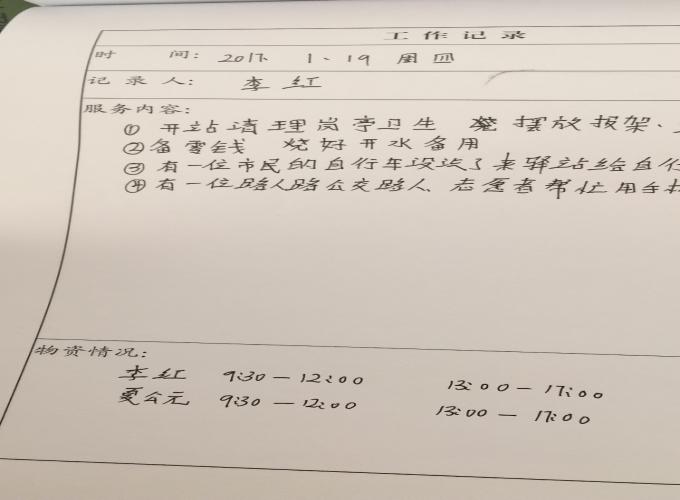 工作记录
时 间: 2017. 1、19 周四
记录人: 李红
服务内容:
① 开站清理岗亭卫生 摆放报架、
②备零钱 烧好开水备用
③有一位市民的自行车没汽了来驿站给自行
④有一位路人路公交路人、志愿者帮忙用手机
物资情况:
李红 9:30—12:00 13:00—17:00
夏公元 9:30—12:00 13:00—17:00